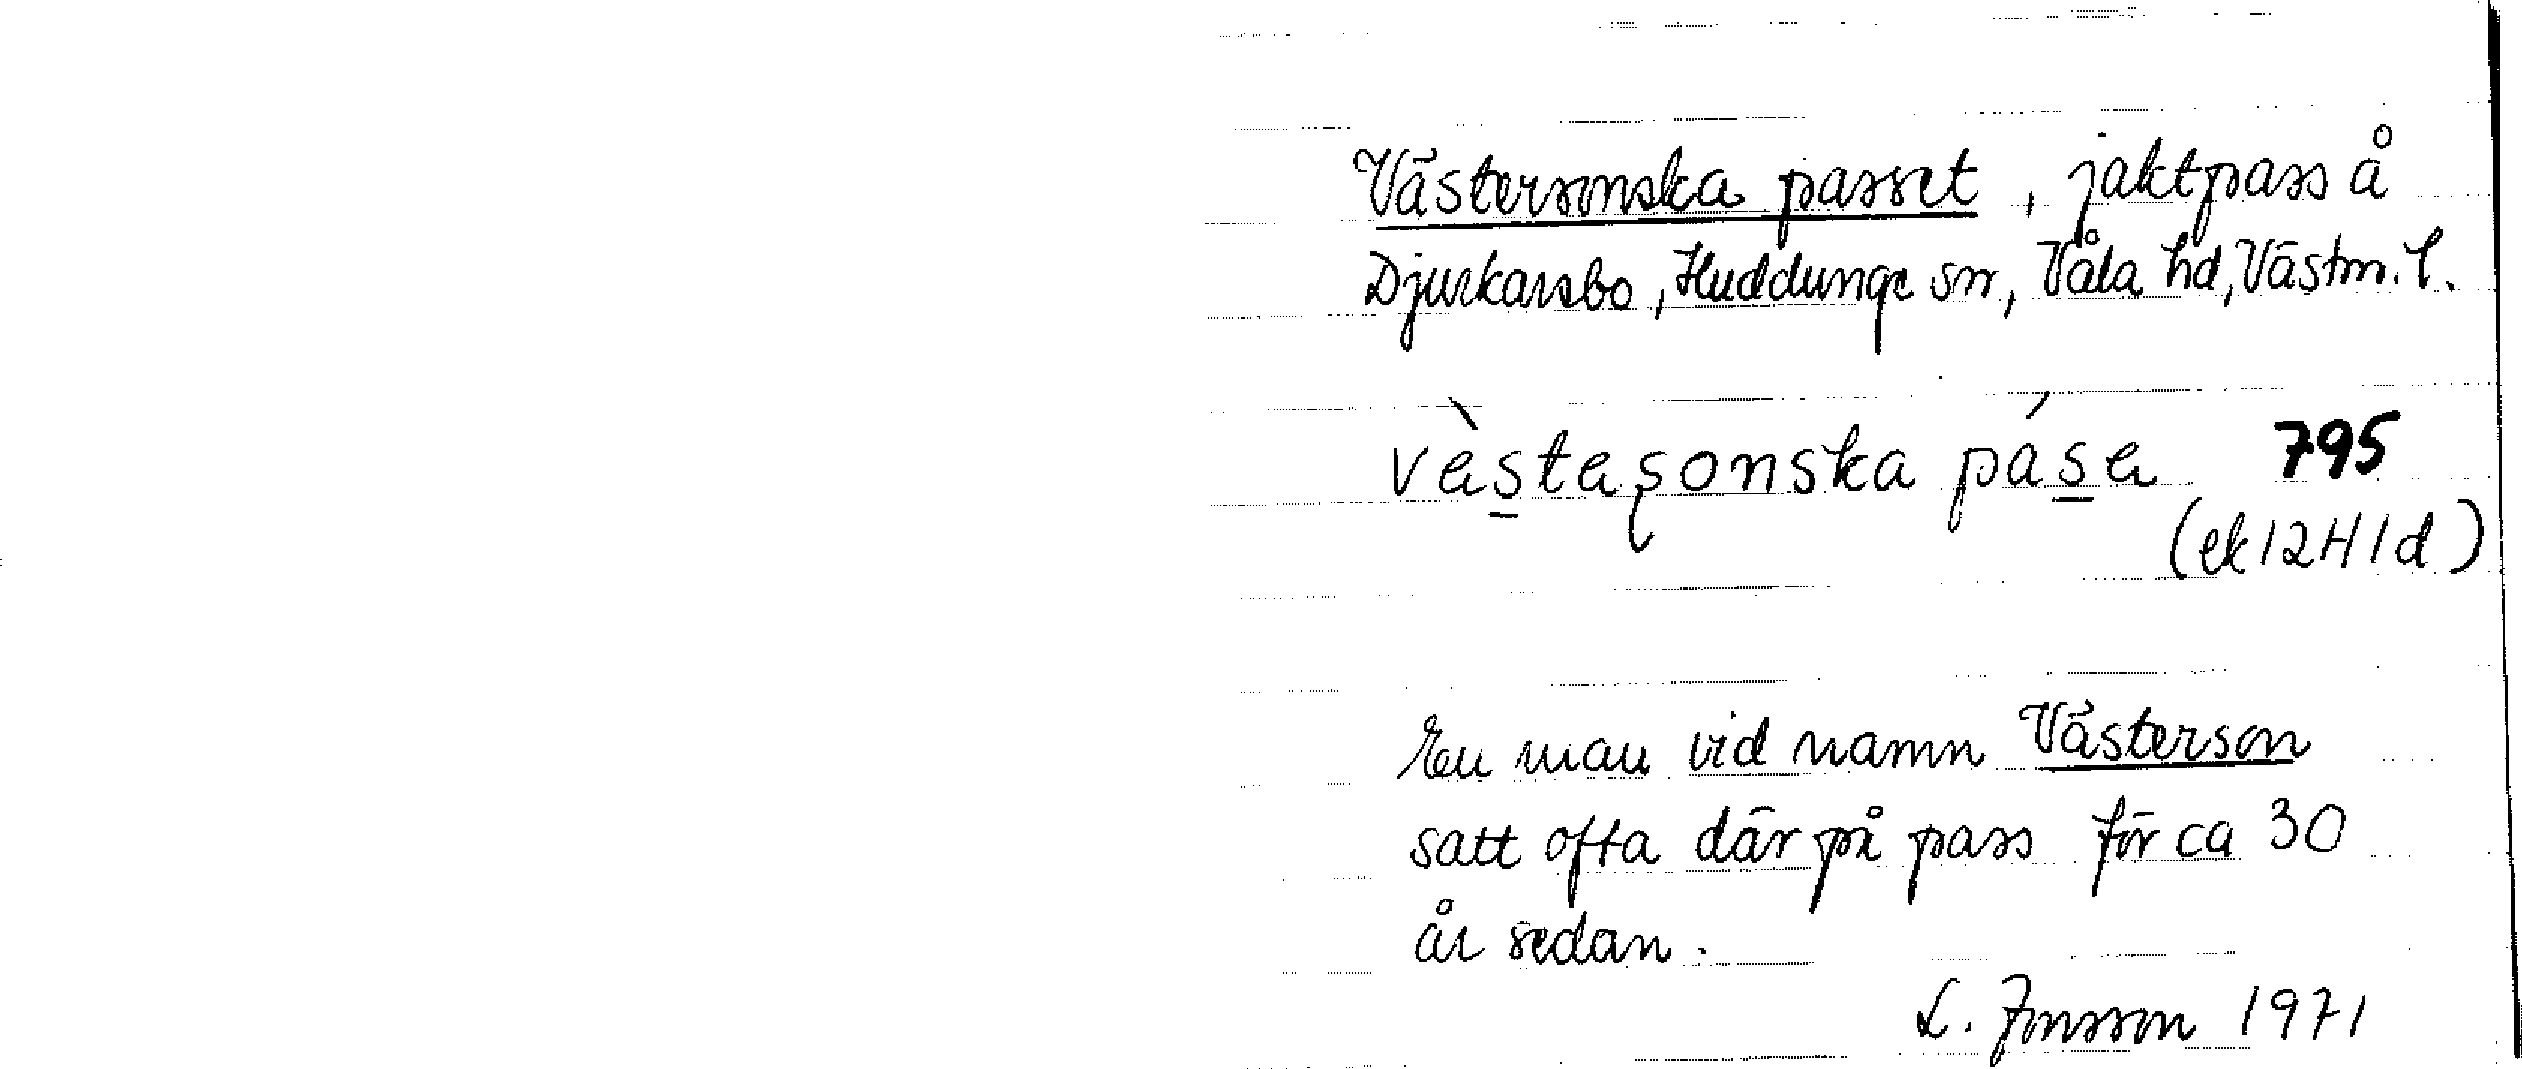 Västersonska passet, jaktpass å
Djurkarsbo, Huddunge sn, Våla hd, Västm. l.
vèstaşonska pása 795
(ek 12H 1d)
En man vid namn Västerson
satt ofta där på pass för ca 30
år sedan.
L. Jonsson 1971